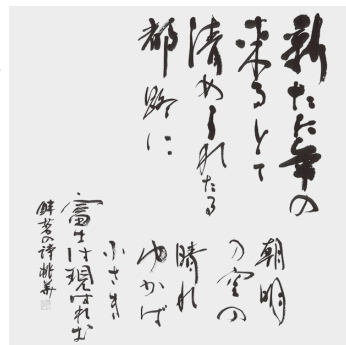 新たに年の
来るとて
清められたる
都路に
朝明
の空の
晴れ
ゆかば
小さき
富士は現はれむ
酔茗の詩